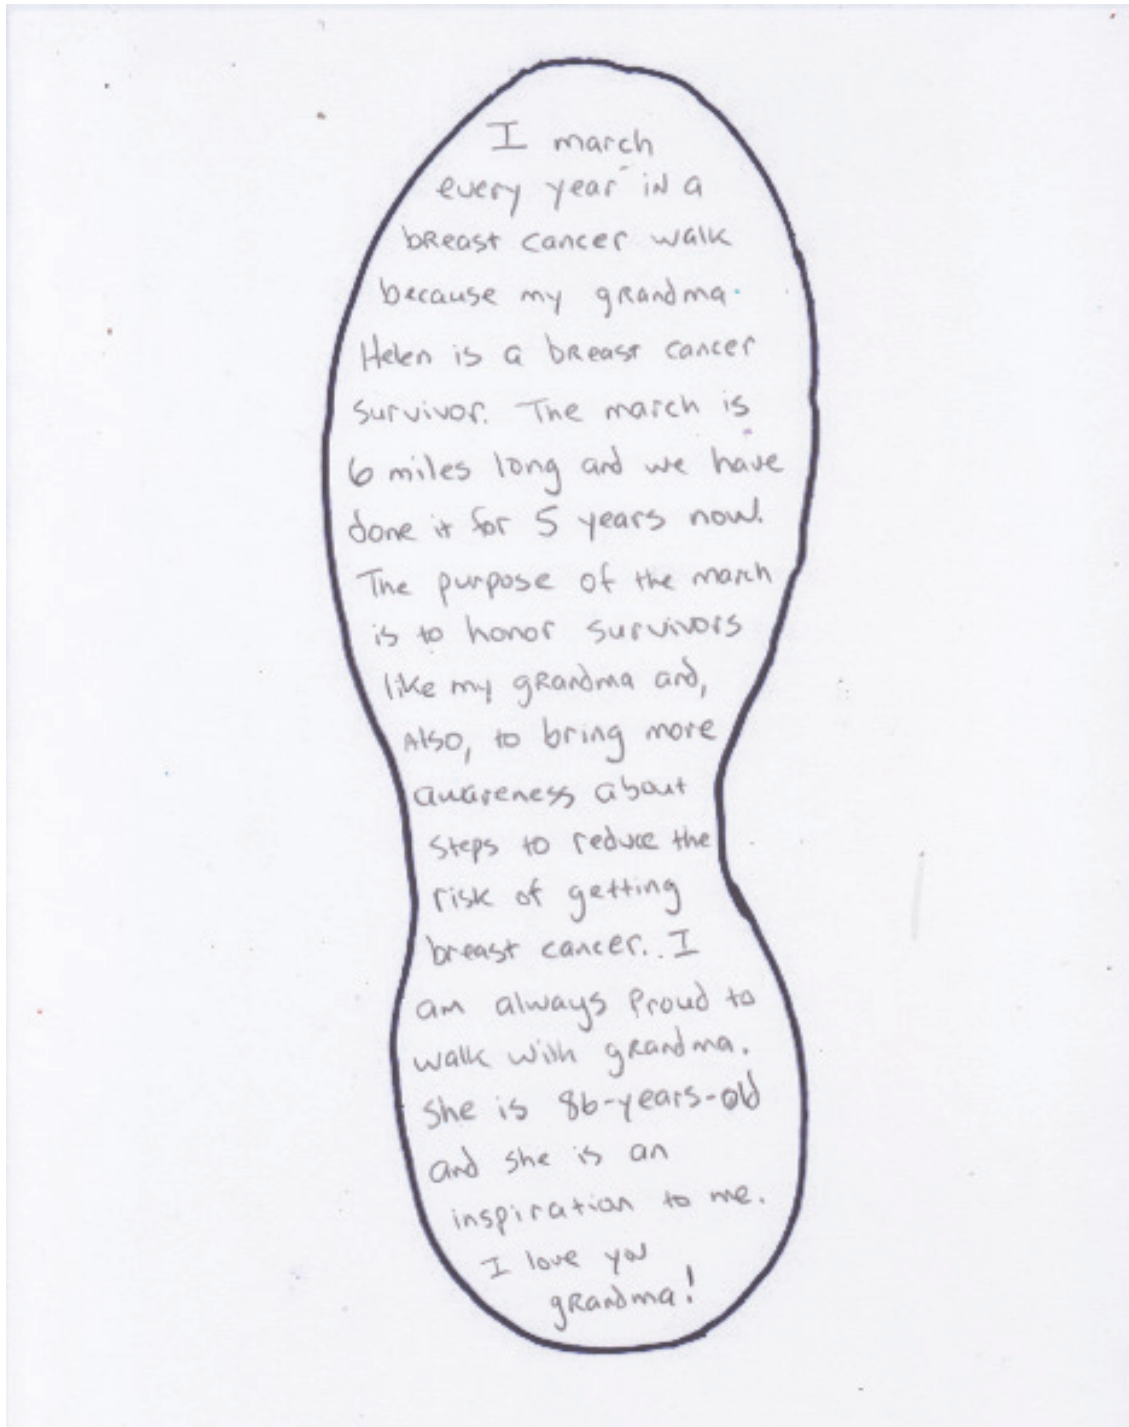 I march
every year in a
breast cancer walk
because my grandma
Helen is a breast cancer
survivor. The march is
6 miles long and we have
done it for 5 years now.
The purpose of the march
is to honor survivors
like my grandma and,
Also, to bring more
awareness about
steps to reduce the
risk of getting
breast cancer. I
am always proud to
walk with grandma.
she is 86-years-old
and she is an
inspiration to me.
I love you
grandma!